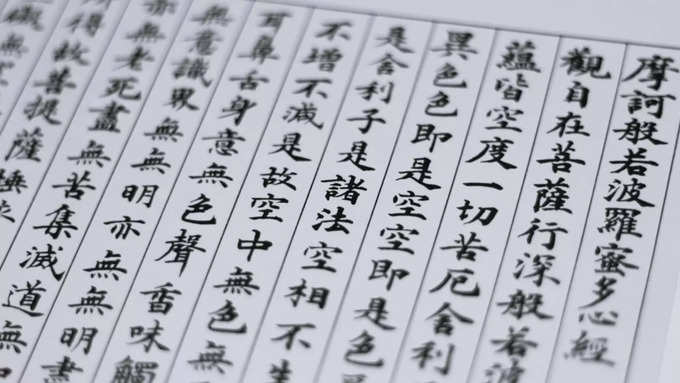 摩訶般若波羅蜜多心經
觀自在菩薩行深般若波
蘊皆空度一切苦厄舍利
異色色即是空空即是色
是舍利子是諸法空相不生
不增不減是故空中無色無
耳鼻舌身意無色聲香味觸
無意識界無無明亦無無明盡
亦無老死盡無苦集滅道無
所得故菩提薩埵依
礙無